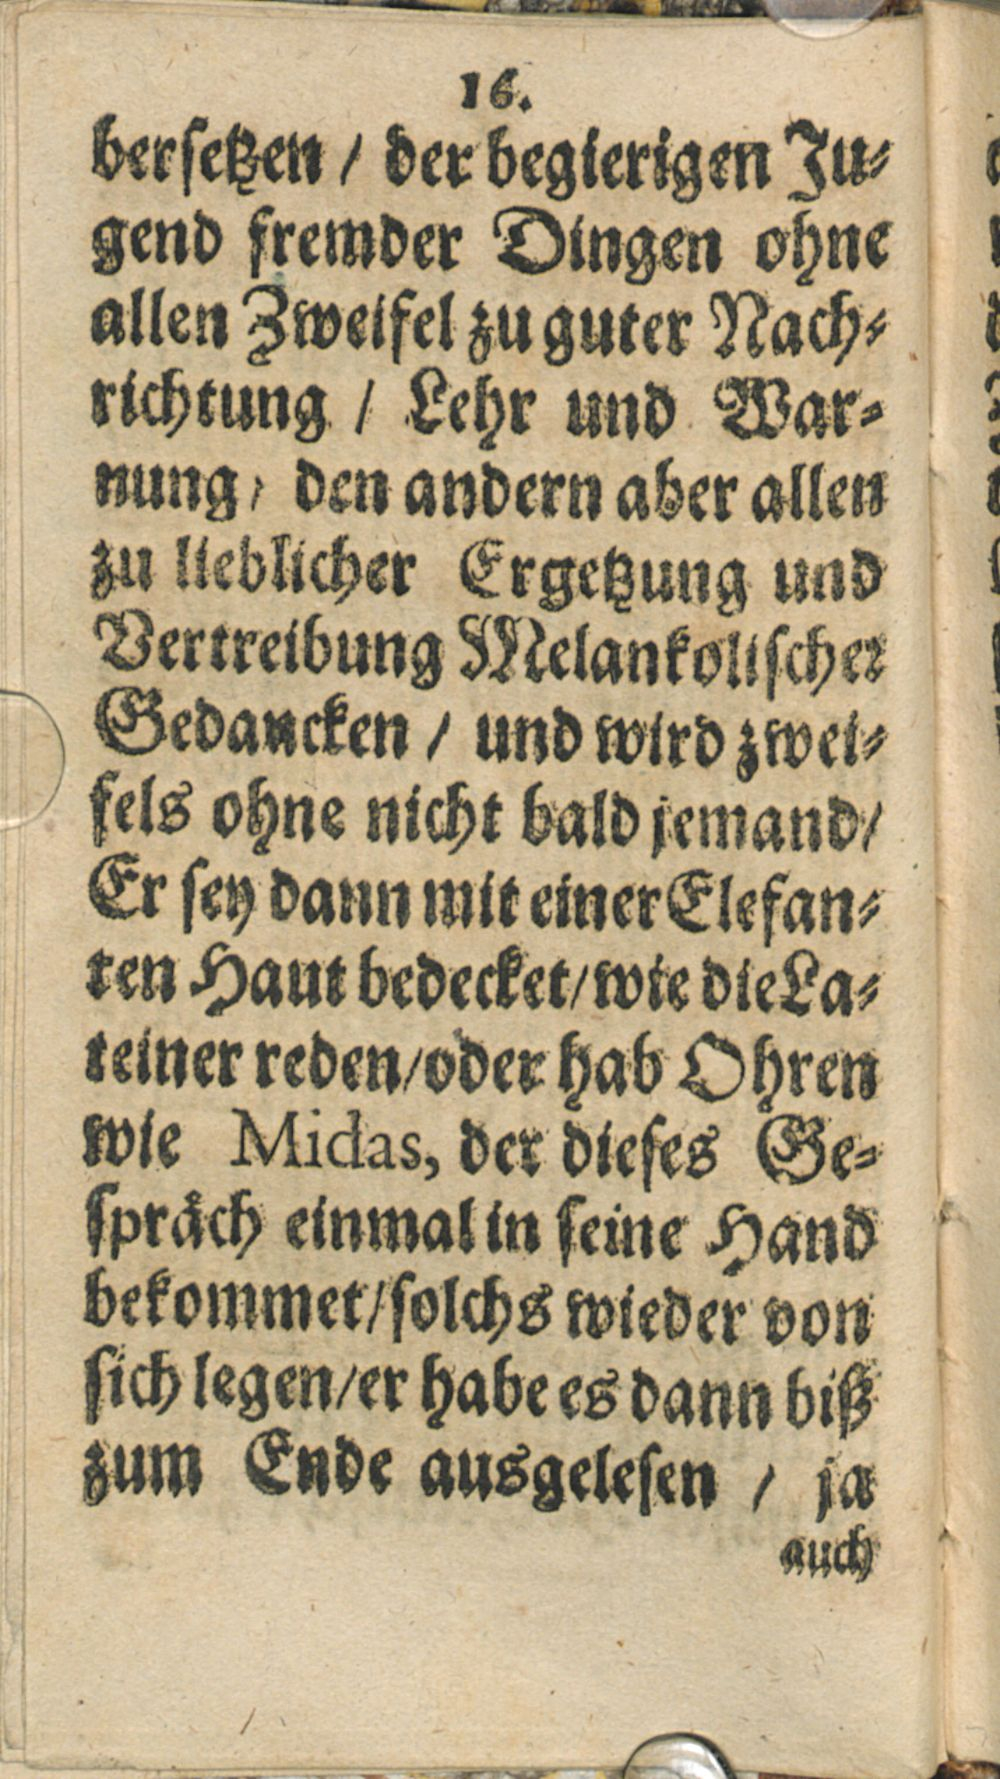 16.
bersetzen / der begierigen Ju-
gend fremder Dingen ohne
allen Zweifel zu guter Nach-
richtung / Lehr und War-
nung / den andern aber allen
zu lieblicher Ergetzung und
Vertreibung Melankolischer
Gedancken / und wird zwei-
fels ohne nicht bald jemand /
Er sey dann mit einer Elefan-
ten Haut bedecket / wie die La-
teiner reden / oder hab Ohren
wie Midas, der dieses Ge-
spraͤch einmal in seine Hand
bekommet / solchs wieder von
sich legen / er habe es dann biß
zum Ende ausgelesen / ja
auch